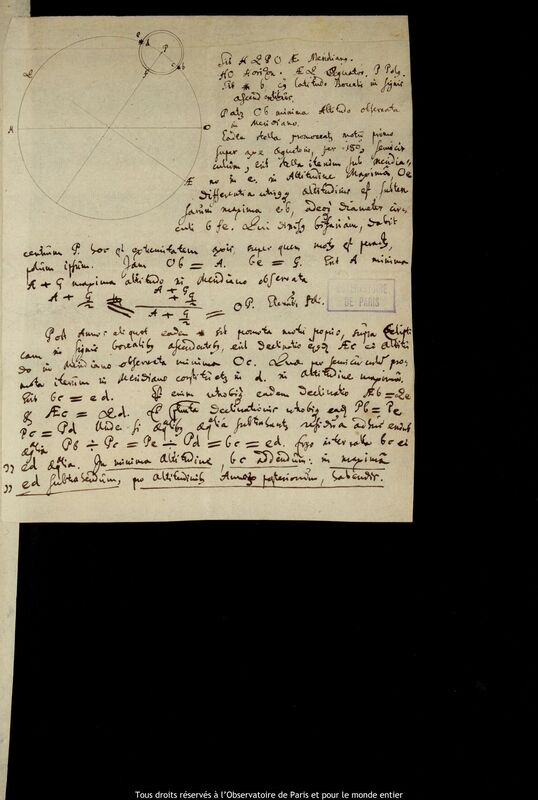 Sit H L P O Æ Meridianus.
HO Horizon. Æ L Æquator. P Polus.
Sit * b in latitudo Borealis in signis
ascendentibus.
Ob minima Altitudo observata
in Meridiano.
Eadem stella promovente motu primo
super axe Æquatoris, per 180, semicir
culum, erit stella iterum sub Meridia
no in e. in Altitudine Maxima Oe
differentia utriusque altitudinis est
maxima eb, diameter circ
culi bfe. bifariam, dabit
centrum P. hoc est extremitatem axis, super quem motus est peractus,
polum ipsum. Jam Ob = A. be = G. Erit A minima
A + G maxima altitudo in Meridiano observata
A + G/2 = A + G/2 = OP. Elevatio Poli.
Post Annos aliquot eadem * sit promota motu proprio, supra Eclipti
cam in signis borealibus ascendentibus, erit declinatio ejus Æc et Altitu
do in Meridiano observata minima Oc. Quæ per semicirculum pro
mota iterum in Meridiano in d. in altitudine maxima.
Erit bc = ed. enim utrobique eadem declinatio Æb = Le
& Æc = Ld. declinationis utrobique Pb = Pe
Pc = Pd Unde si æqualibus æqualia subtrahentur, residua adhuc erunt
æqualia Pb ÷ Pc = Pe ÷ Pd = bc = ed. Ergo intervalla bc et
ed æqualia. In minima Altitudine, bc addendum: in maxima
ed subtrahendum, pro Altitudinibus Annorum posteriorum, habendis.
OBSERVATOIRE
DE PARIS
H
L
P
O
Æ
e
d
c
b
Tous droits réservés à l'Observatoire de Paris et pour le monde entier